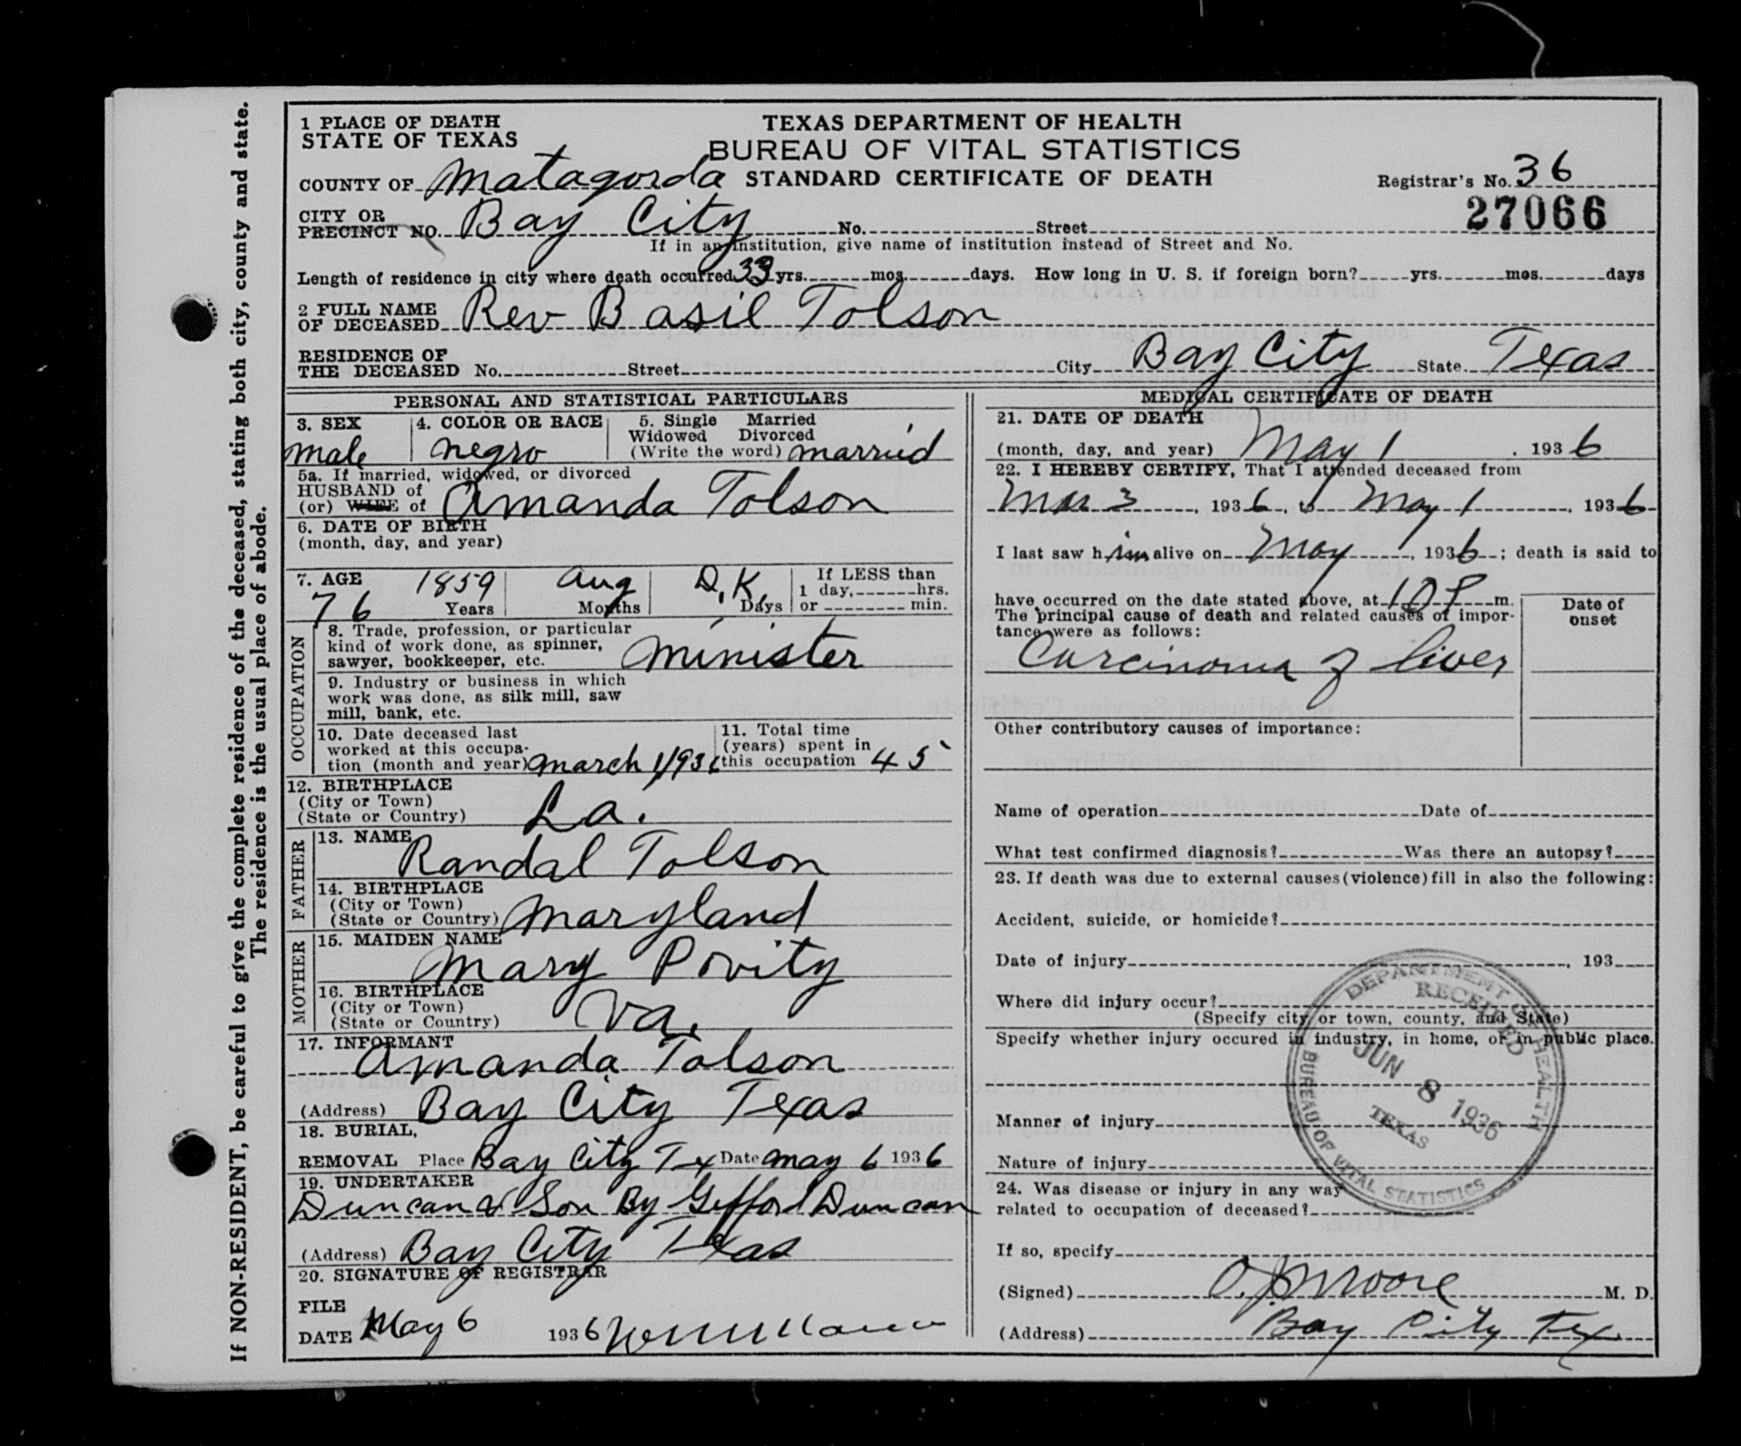 If NON-RESIDENT, be careful to give the complete residence of the deceased, stating both city, county and state.
The residence is the usual place of abode.
1 PLACE OF DEATH
STATE OF TEXAS
TEXAS DEPARTMENT OF HEALTH
BUREAU OF VITAL STATISTICS
STANDARD CERTIFICATE OF DEATH
COUNTY OF Matagorda
Registrar's No. 36
27066
CITY OR
PRECINCT NO. Bay City No. Street
If in an institution, give name of institution instead of Street and No.
Length of residence in city where death occurred 33 yrs. mos. days. How long in U. S. if foreign born? yrs. mos. days
2 FULL NAME
OF DECEASED Rev Basil Tolson
RESIDENCE OF
THE DECEASED No. Street City Bay City State Texas
PERSONAL AND STATISTICAL PARTICULARS
3. SEX
male
4. COLOR OR RACE
negro
5. Single Married
Widowed Divorced
(Write the word) married
5a. If married, widowed, or divorced
HUSBAND of
(or) WIFE of Amanda Tolson
6. DATE OF BIRTH
(month, day, and year)
7. AGE
76
1859
Years
Aug
Months
D.K.
Days
If LESS than
1 day, hrs.
or min.
OCCUPATION
8. Trade, profession, or particular
kind of work done, as spinner,
sawyer, bookkeeper, etc. Minister
9. Industry or business in which
work was done, as silk mill, saw
mill, bank, etc.
10. Date deceased last
worked at this occupa-
tion (month and year) March 1/936
11. Total time
(years) spent in
this occupation 45
12. BIRTHPLACE
(City or Town)
(State or Country) La.
FATHER
13. NAME Randal Tolson
14. BIRTHPLACE
(City or Town)
(State or Country) Maryland
MOTHER
15. MAIDEN NAME
Mary Povity
16. BIRTHPLACE
(City or Town)
(State or Country) Va.
17. INFORMANT
Amanda Tolson
(Address) Bay City Texas
18. BURIAL,
REMOVAL Place Bay City Tex Date May 6 1936
19. UNDERTAKER
Duncan & Son By Gifford Duncan
(Address) Bay City Texas
20. SIGNATURE OF REGISTRAR
FILE
DATE May 6 1936
MEDICAL CERTIFICATE OF DEATH
21. DATE OF DEATH
(month, day, and year) May 1, 1936
22. I HEREBY CERTIFY, That I attended deceased from
Mar 3, 1936, to May 1, 1936
I last saw him alive on May, 1936; death is said to
have occurred on the date stated above, at 10 P m.
The principal cause of death and related causes of impor-
tance were as follows:
Date of
onset
Carcinoma of liver
Other contributory causes of importance:
Name of operation Date of
What test confirmed diagnosis? Was there an autopsy?
23. If death was due to external causes (violence) fill in also the following:
Accident, suicide, or homicide?
Date of injury , 193
Where did injury occur?
(Specify city or town, county, and State)
Specify whether injury occured in industry, in home, or in public place.
Manner of injury
Nature of injury
24. Was disease or injury in any way
related to occupation of deceased?
If so, specify
(Signed) O. J. Moore M. D.
(Address) Bay City Tex
DEPARTMENT OF HEALTH
RECEIVED
JUN 8 1936
TEXAS
BUREAU OF VITAL STATISTICS